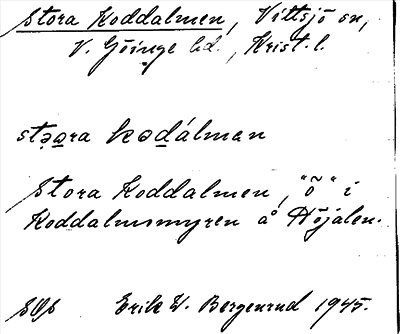 Stora Koddalmen, Vittsjö sn,
V. Göinge hd., Krist. l.
stǝara kodálmen
Stora Koddalmen, "ö" i
Koddalmsmyren å Höjalen.
SOS Erik W. Bergenrud 1945.